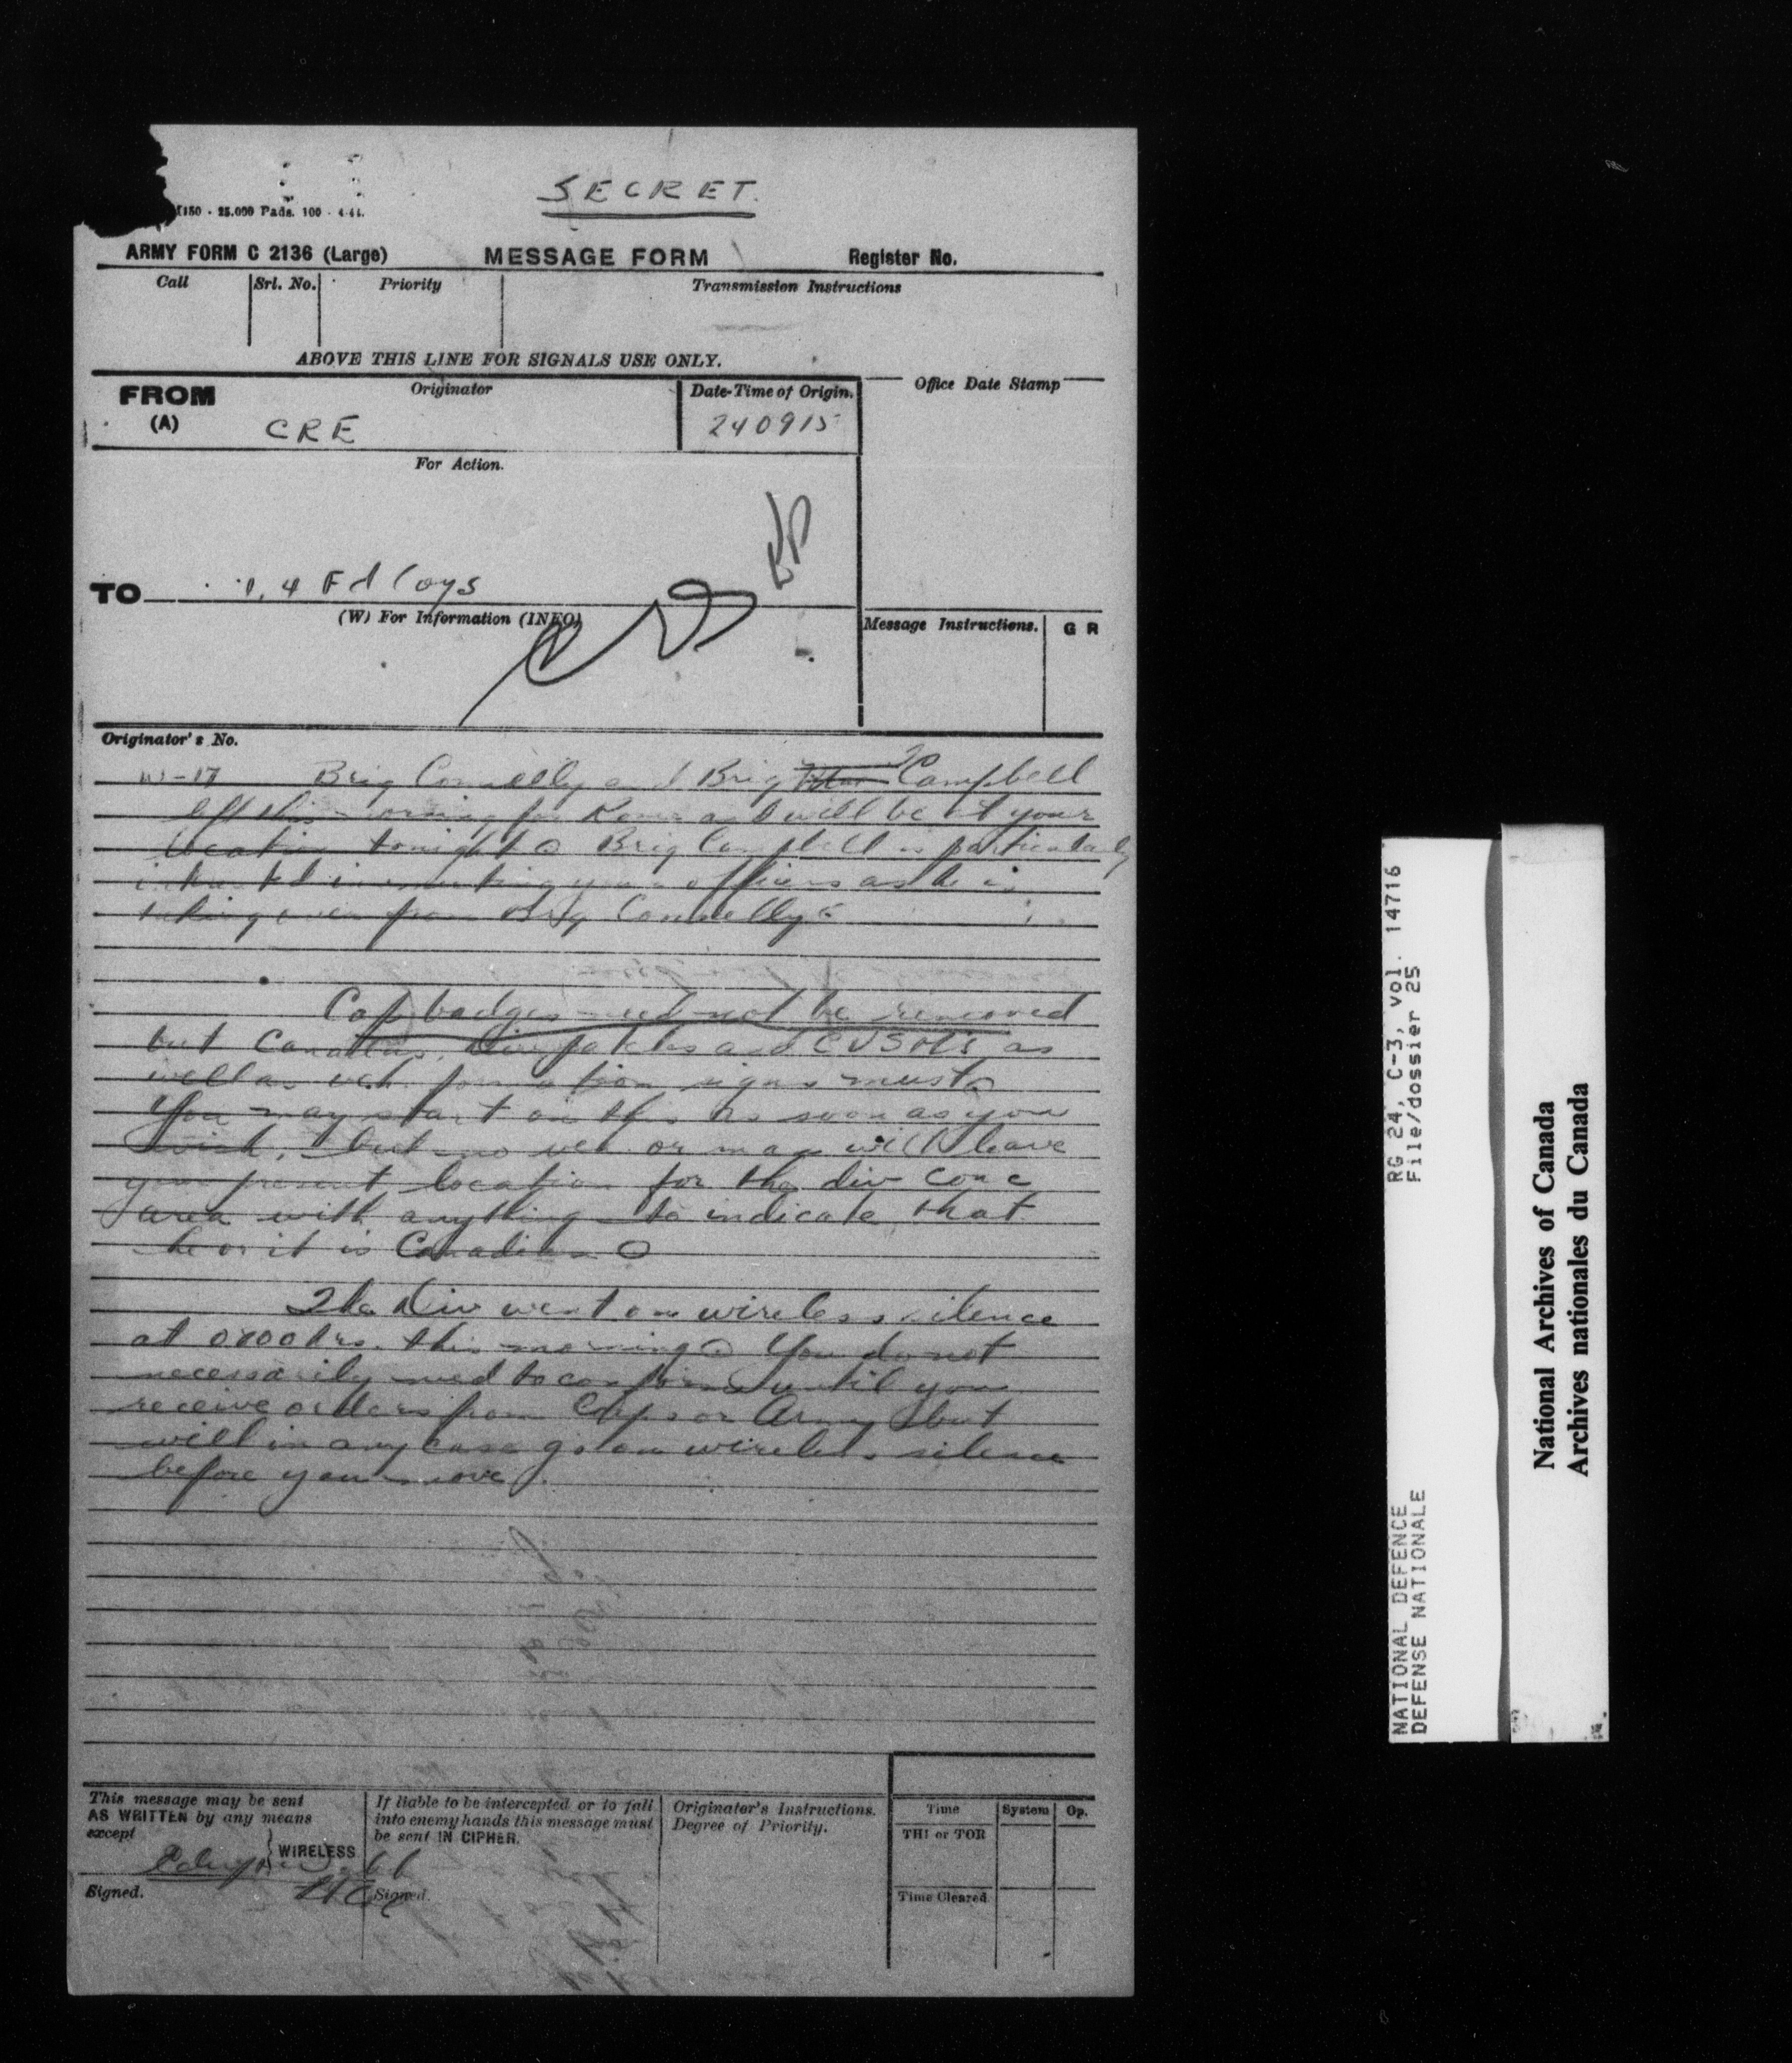 SECRET.
150 - 25.000 Pads. 100 - 4.44.
ARMY FORM C 2136 (Large) MESSAGE FORM Register No.
Call Srl. No. Priority Transmission Instructions
ABOVE THIS LINE FOR SIGNALS USE ONLY.
FROM (A) Originator Date-Time of Origin. Office Date Stamp
CRE 240915
For Action.
TO 1, 4 Fd Coys
(W) For Information (INFO) Message Instructions. G R
Originator's No.
Brig Connelly and Brig Campbell
left this morning for and will be at your
location tonight O Brig Campbell is particularly
interested in meeting your officers as he is
taking over from Brig Connelly O
Cap badges need not be removed
but Canadas, div patches and CVSMs as
well as veh formation signs must O
You may start on this as soon as you
wish, but no veh or man will leave
your present location for the div conc
area with anything to indicate that
he or it is Canadian O
The Div went on wireless silence
at hrs. this morning O You do not
necessarily need to conform until you
receive orders from Corps or Army but
will in any case go on wireless silence
before you move.
This message may be sent
AS WRITTEN by any means
except } WIRELESS
Signed.
If liable to be intercepted or to fall
into enemy hands this message must
be sent IN CIPHER.
Signed.
Originator's Instructions.
Degree of Priority.
Time System Op.
THI or TOR
Time Cleared
RG 24, C-3, vol. 14716
File/dossier 25
NATIONAL DEFENCE
DEFENSE NATIONALE
National Archives of Canada
Archives nationales du Canada